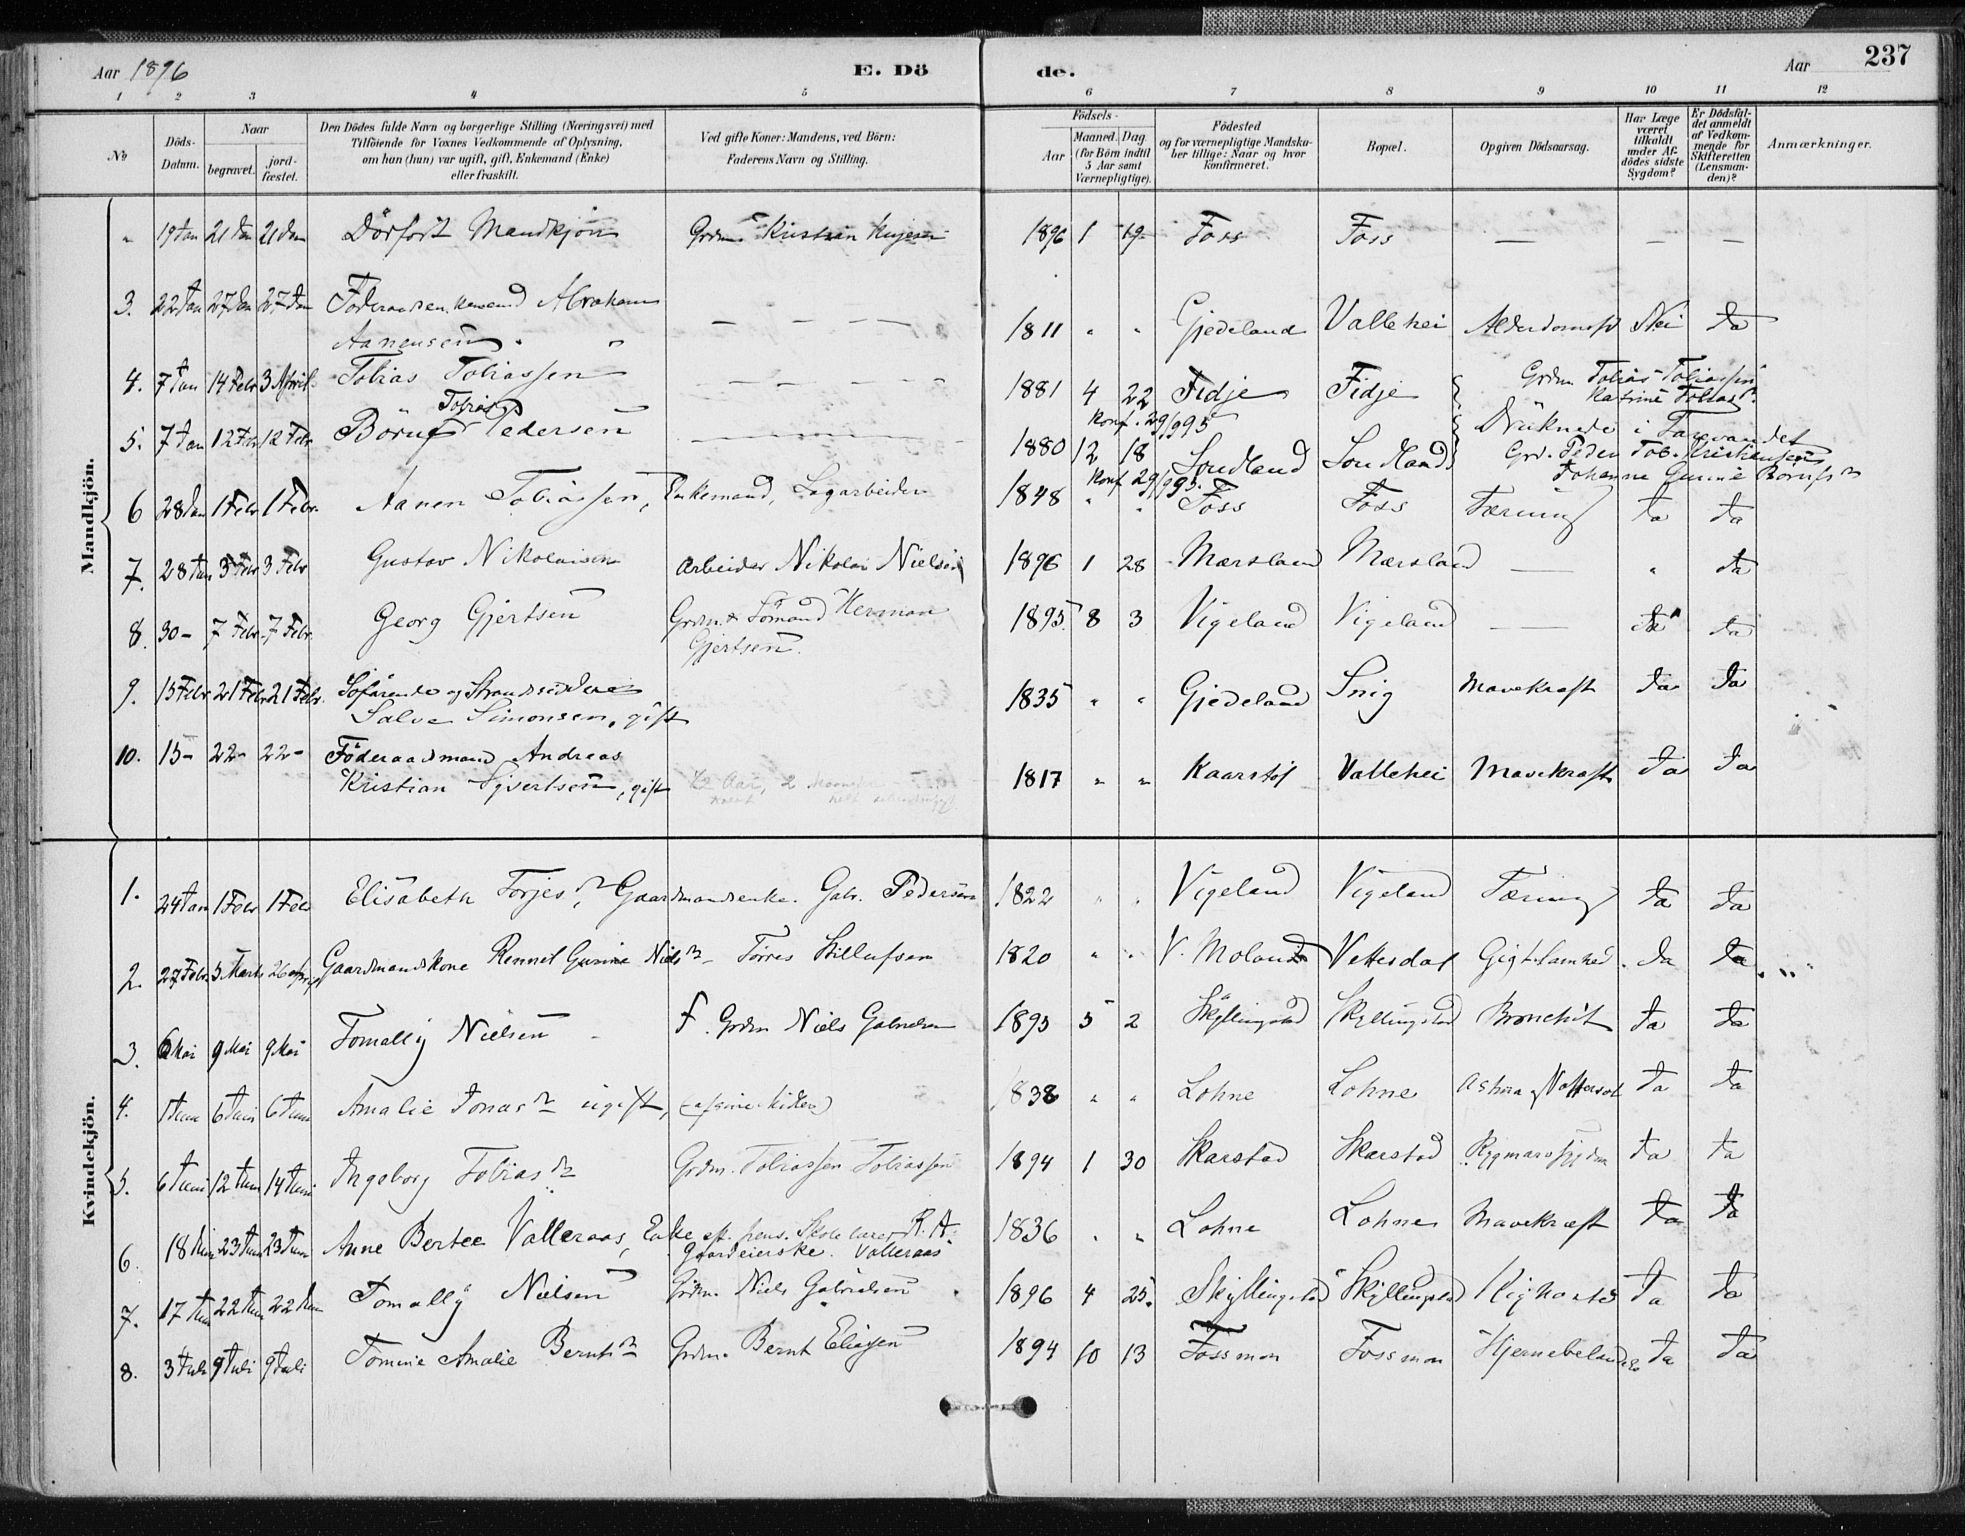 Aar 1896 E. Dö de. Aar 237
1 2 3 4 5 6 7 8 9 10 11 12
No
Döds-Datum.
Naar
begravet.
jord-fæstet.
Den Dödes fulde Navn og borgerlige Stilling (Næringsvei) med
Tilföiende for Voxnes Vedkommende af Oplysning,
om han (hun) var ugift, gift, Enkemand (Enke)
eller fraskilt.
Ved gifte Koner: Mandens, ved Börn:
Faderens Navn og Stilling.
Födsels-
Aar
Maaned. Dag
(for Börn indtil
5 Aar samt
Værnepligtige).
Födested
og for værnepligtige Mandska-
ber tillige: Naar og hvor
konfirmeret.
Bopæl.
Opgiven Dödsaarsag.
Har Læge
været
tilkaldt
under Af-
dödes sidste
Sygdom?
Er Dödsfal-
det anmeldt
af Vedkom-
mende for
Skifteretten
(Lensman-
den)?
Anmærkninger.
Mandkjön.
" 19 Jan 21 Jan 21 Jan Dödfödt Mandkjön Grdm. Kristian 1896 1 19 Foss Foss — — —
3. 22 Jan 27 Jan 27 Jan Föderaadsenkemand Abraham
Aanensen — — — — 1811 " " Gjedeland Vallehei Alderdomssv Nei Ja
4. 7 Jan 14 Febr 3 April Tobias Tobiassen — — — — 1881 4 22 Fidje Fidje Grdm Tobias Tobiassen
Katrine Tobiasd.
Konf. 29/9 95 Druknede i Farevandet
Tobias
5. 7 Jan 12 Febr 12 Febr. Böruf Pedersen — 1880 12 18 Soudland Soudland Grd. Peder Tob. Kristiansen
Johanne Gurine Börufsdr
Konf 29/9 95.
6 28 Jan 1 Febr 1 Febr. Aanen Tobiassen, Enkemand, Sagarbeider 1848 " " Foss Foss Tæring Ja Ja
7. 28 Jan 3 Febr 3 Febr Gustav Nikolaisen Arbeider Nikolai Nielsen 1896 1 28 Mærsland Mærsland — " Ja
8. 30 - 7 Febr. 7 Febr. Georg Gjertsen Grdm. & Sömand Herman
Gjertsen. 1895 8 3 Vigeland Vigeland — Ja Ja
9. 15 Febr 21 Febr 21 Febr. Söfarende og Strandsidder
Salve Simonsen, gift 1835 " " Gjedeland Snig Mavekræft Ja Ja
10. 15 - 22 - 22 - Föderaadsmand Andreas
Kristian Syvertsen, gift 1817 " " Kaarstöl Vallehei Mavekræft Ja Ja
72 Aar, 2 Maaneder
Kvindekjön.
1. 24 Jan 1 Febr 1 Febr Elisabeth Torjesdr, Gaardmandsenke. Gabr. Pedersen 1822 " " Vigeland Vigeland Tæring Ja Ja
2. 27 Febr. 5 Marts 26 April Gaardmandskone Rennel Gurine Nielsdr - Torres Stillufsen 1820 " " V. Moland Vettesdal Gigt Lamhed Ja Ja
3. 6 Mai 9 Mai 9 Mai Tomally Nielsen - F. Grdm Niels Gabrielsen 1895 5 2 Skyllingstad Skyllingstad Bronchit Ja Ja
4. 1 Juni 6 Juni 6 Juni Amalie Jonasdr ugift, 1838 " " Lohne Lohne Asthma & Vattersot Ja Ja
5. 6 Juni 12 Juni 14 Juni Ingeborg Tobiasdr Grdm. Tobiassen Tobiassen 1894 1 30 Skarstad Skarstad Rygmarvssygdom Ja Ja
6. 18 Juni 23 Juni 23 Juni Anne Bertee Valleraas, Enke eft. pens. Skolelærer R. A.
Gaardeierske. Valleraas 1836 " " Lohne Lohne Mavekræft Ja Ja
7. 17 Juni 22 Juni 22 Juni Tomally Nielsen Grdm. Niels Gabrielsen 1896 4 25. Skyllingstad Skyllingstad Kighoste Ja Ja
8. 3 Juli 9 Juli 9 Juli Tomine Amalie Berntsdr Grdm. Bernt Eliasen 1894 10 13 Fossmon Fossmon Hjernebetændelse Ja Ja